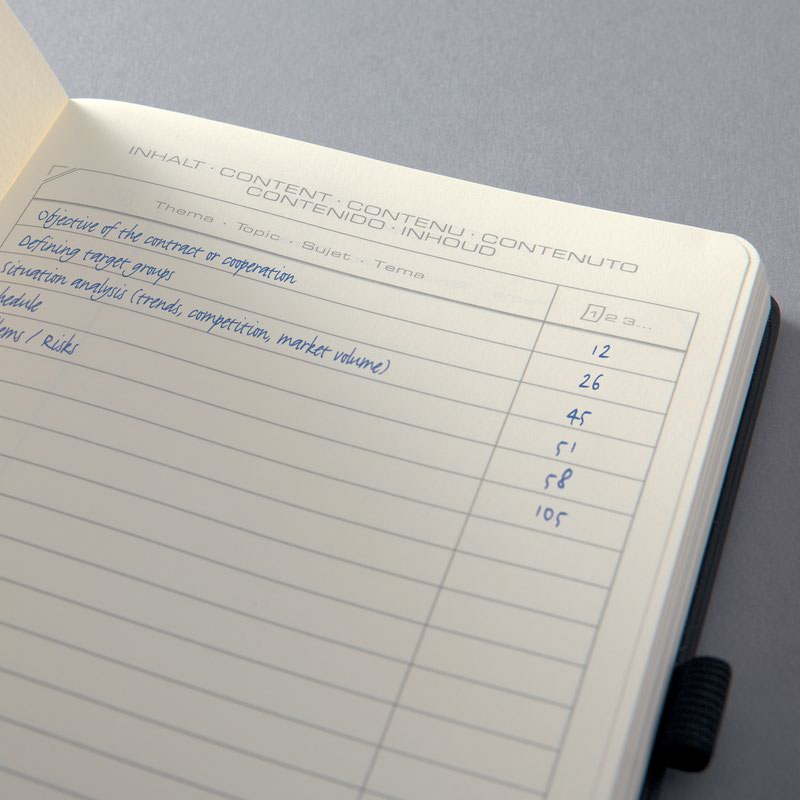 INHALT · CONTENT · CONTENU · CONTENUTO
CONTENIDO · INHOUD
Thema · Topic · Sujet · Tema 1 2 3...
Objective of the contract or cooperation 12
Defining target groups 26
situation analysis (trends, competition, market volume) 45
hedule 51
ems / Risks 58
105